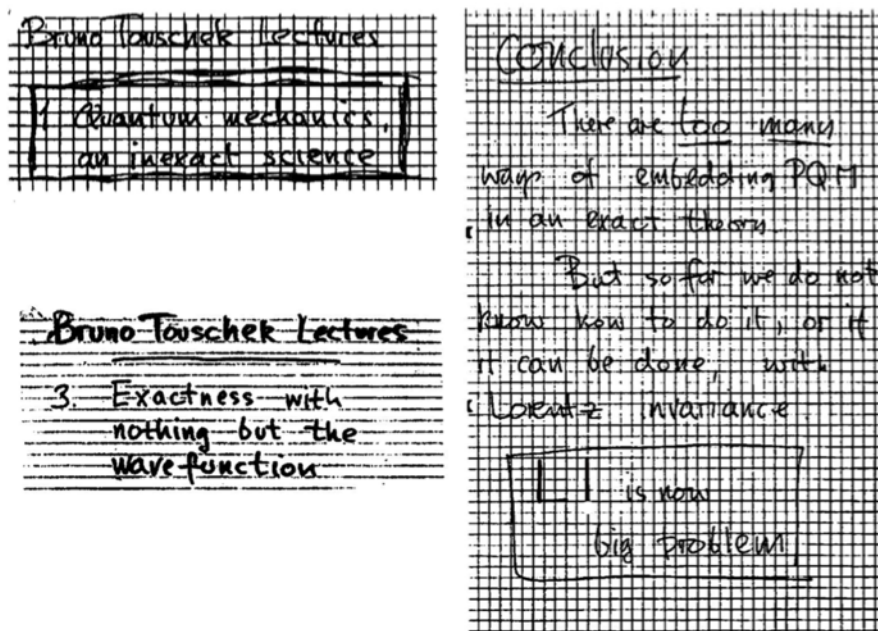 Bruno Touschek Lectures
1 Quantum mechanics,
an inexact science
Bruno Touschek Lectures
3. Exactness with
nothing but the
wavefunction
Conclusion
There are too many
ways of embedding PQM
in an exact theory.
But so far we do not
know how to do it, or if
it can be done, with
Lorentz invariance.
LI is now
big problem